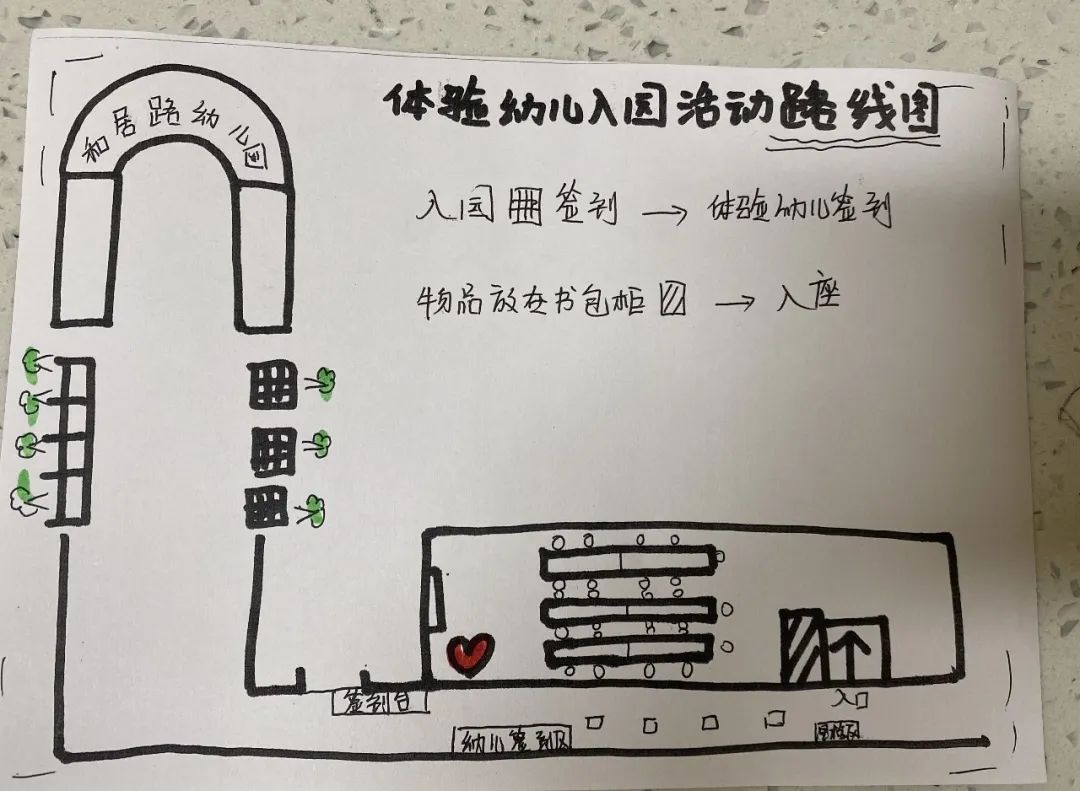 体验幼儿入园活动路线图
和居路幼儿园
入园 签到 → 体验幼儿签到
物品放在书包柜 → 入座
签到台
入口
幼儿签到区